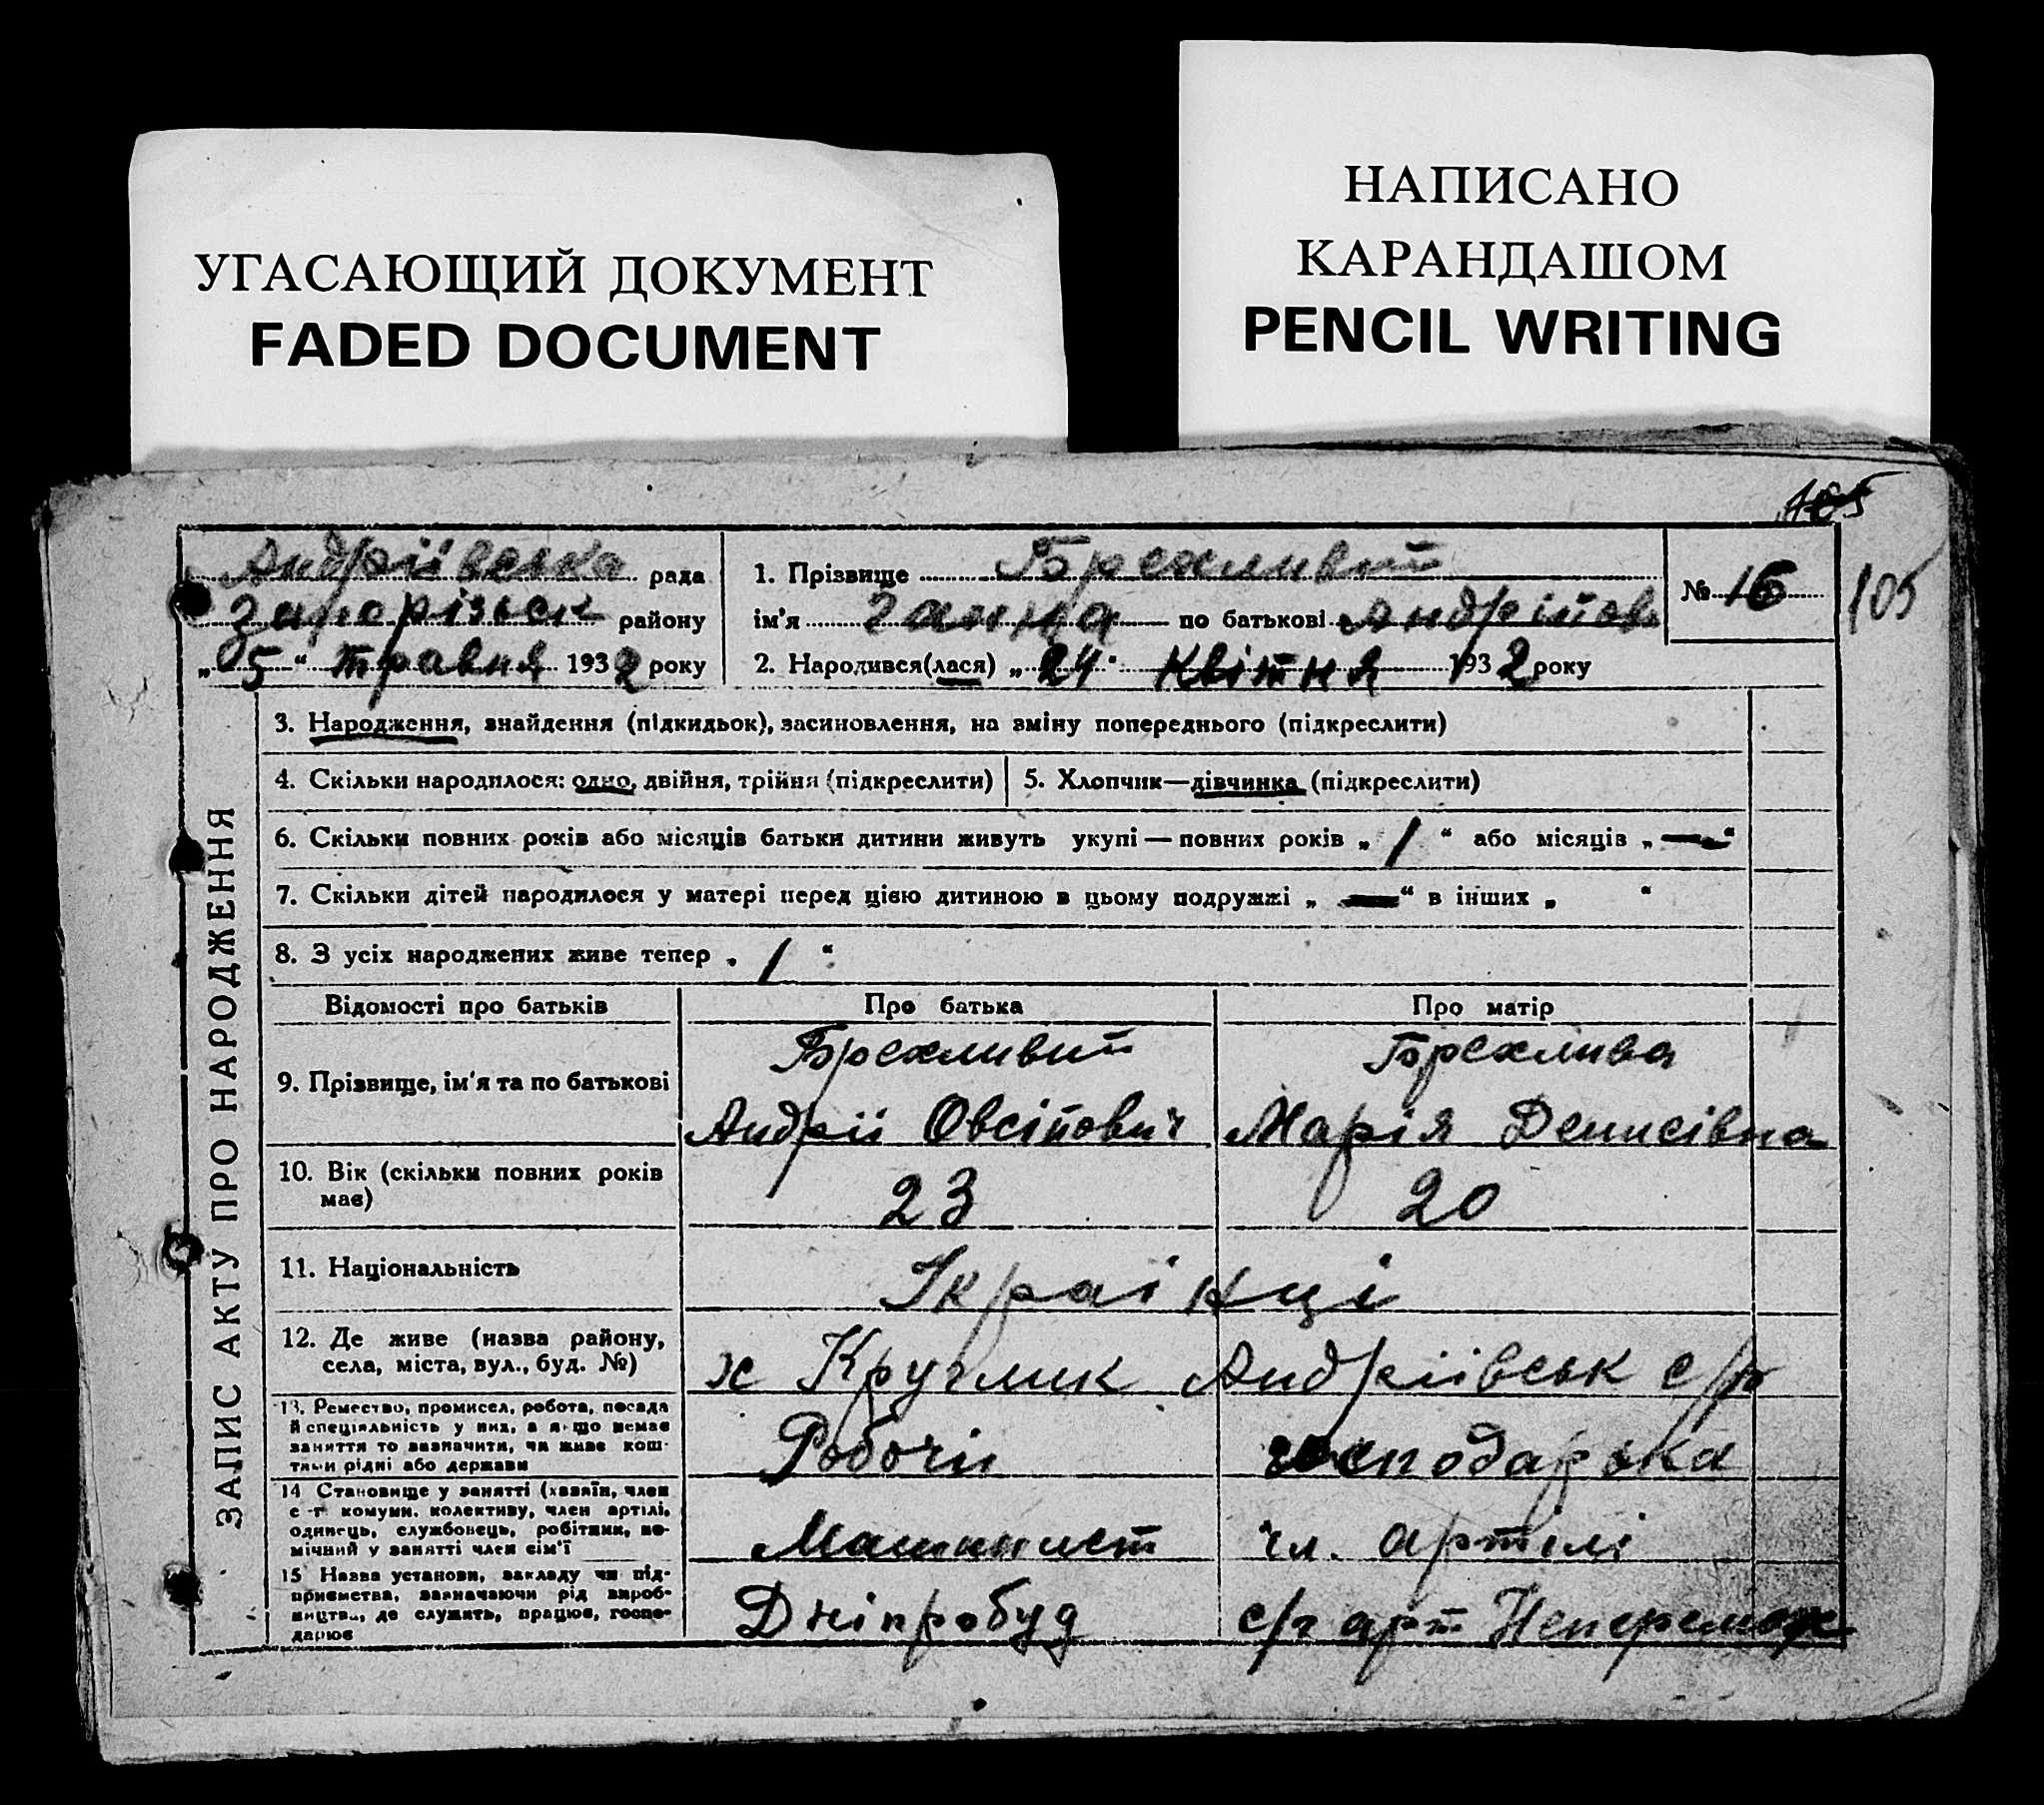 НАПИСАНО
КАРАНДАШОМ
PENCIL WRITING
УГАСАЮЩИЙ ДОКУМЕНТ
FADED DOCUMENT
105
Андріївська рада
Запорізьск району
„ 5 “ травня 1932 року
1. Прізвище Брехливий
ім'я Ганна по батькові Андріїов
2. Народився(лася) „ 24 “ квітня 1932 року
№ 16
105
ЗАПИС АКТУ ПРО НАРОДЖЕННЯ
3. Народження, знайдення (підкидьок), засиновлення, на зміну попереднього (підкреслити)
4. Скільки народилося: одно, двійня, трійня (підкреслити)
5. Хлопчик—дівчинка (підкреслити)
6. Скільки повних років або місяців батьки дитини живуть укупі — повних років „ 1 “ або місяців „ — “
7. Скільки дітей народилося у матері перед цією дитиною в цьому подружжі „ — “ в інших „ “
8. З усіх народжених живе тепер „ 1 “
Відомості про батьків
Про батька
Про матір
9. Прізвище, ім'я та по батькові
Брехливий
Андрій Овсійович
Брехлива
Марія Денисівна
10. Вік (скільки повних років
має)
23
20
11. Національність
Українці
12. Де живе (назва району,
села, міста, вул., буд. №)
х Кручлик Андріївськ с/р
13. Ремество, промисел, робота, посада
й спеціяльність у них, а якщо немає
заняття то зазначити, чи живе кош-
тами рідні або держави
Робочий
господарька
14 Становище у занятті (хазяїн, член
с-г комуни, колективу, член артілі,
одинець, службовець, робітник, по-
мічний у занятті член сім'ї
Машинист
чл. артілі
15 Назва установи, закладу чи під-
приємства, зазначаючи рід вироб-
ництва, де служить, працює, госпо-
дарює
Дніпробуд
с/г арт Непереможе